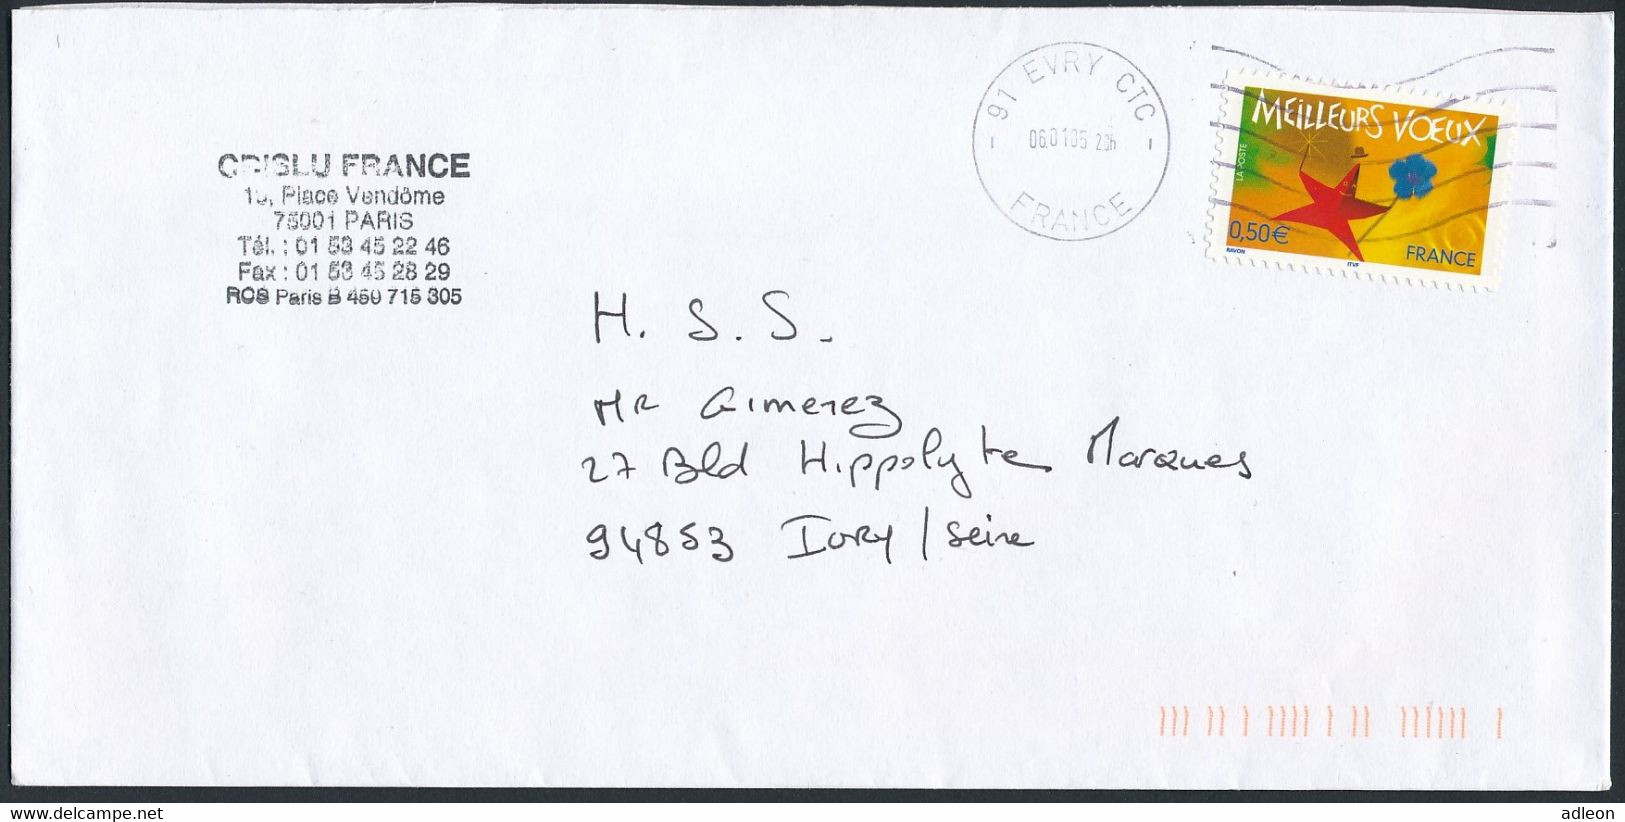 CRISLU FRANCE
Place Vendôme
75001 PARIS
Tél. : 01 53 45 22 46
Fax : 01 53 45 28 29
RCS Paris B 450 715 305
91 EVRY CTC
060105 20h
FRANCE
MEILLEURS VOEUX
LA POSTE
0,50€
FRANCE
RAVON
ITVF
H. S. S.
MR Gimenez
27 Bld Hippolyte Marques
94853 Ivry / Seine
www.delcampe.net
adleon